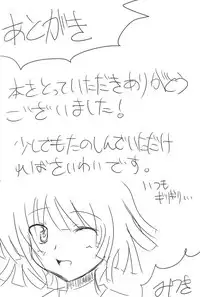 あとがき
本をとっていただきありがとう
ございました!
少しでもたのしんでいただけ
ればさいわいです。
いつも
ギリギリ…
みつき